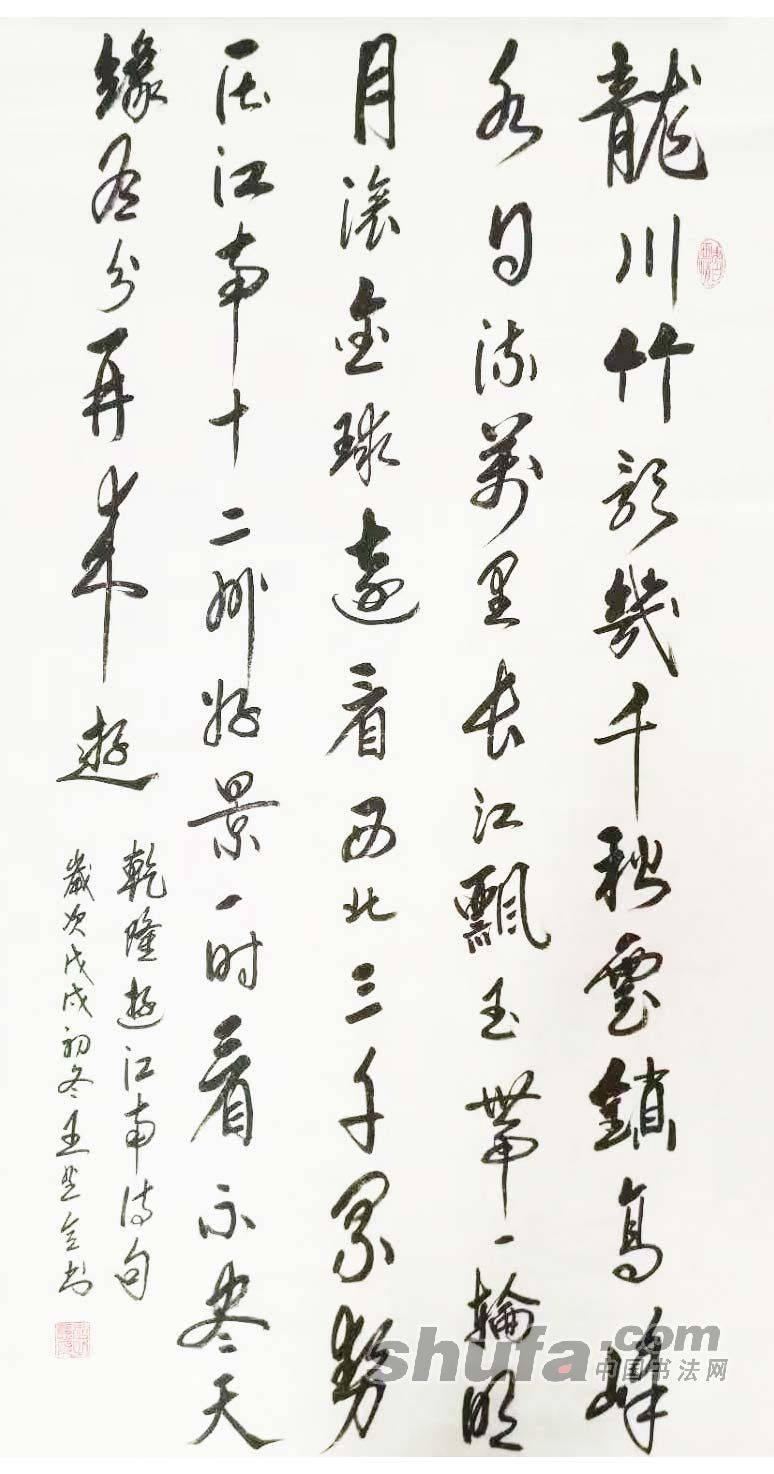 龍川竹影幾千秋雲鎖高峰
水自流萬里長江飄玉帶一輪明
月滾金球遠看西北三千界勢
压江南十二州好景一时看不盡天
緣有分再来遊
乾隆遊江南诗句
歲次戊戌初冬王书
shufa.com
中国书法网